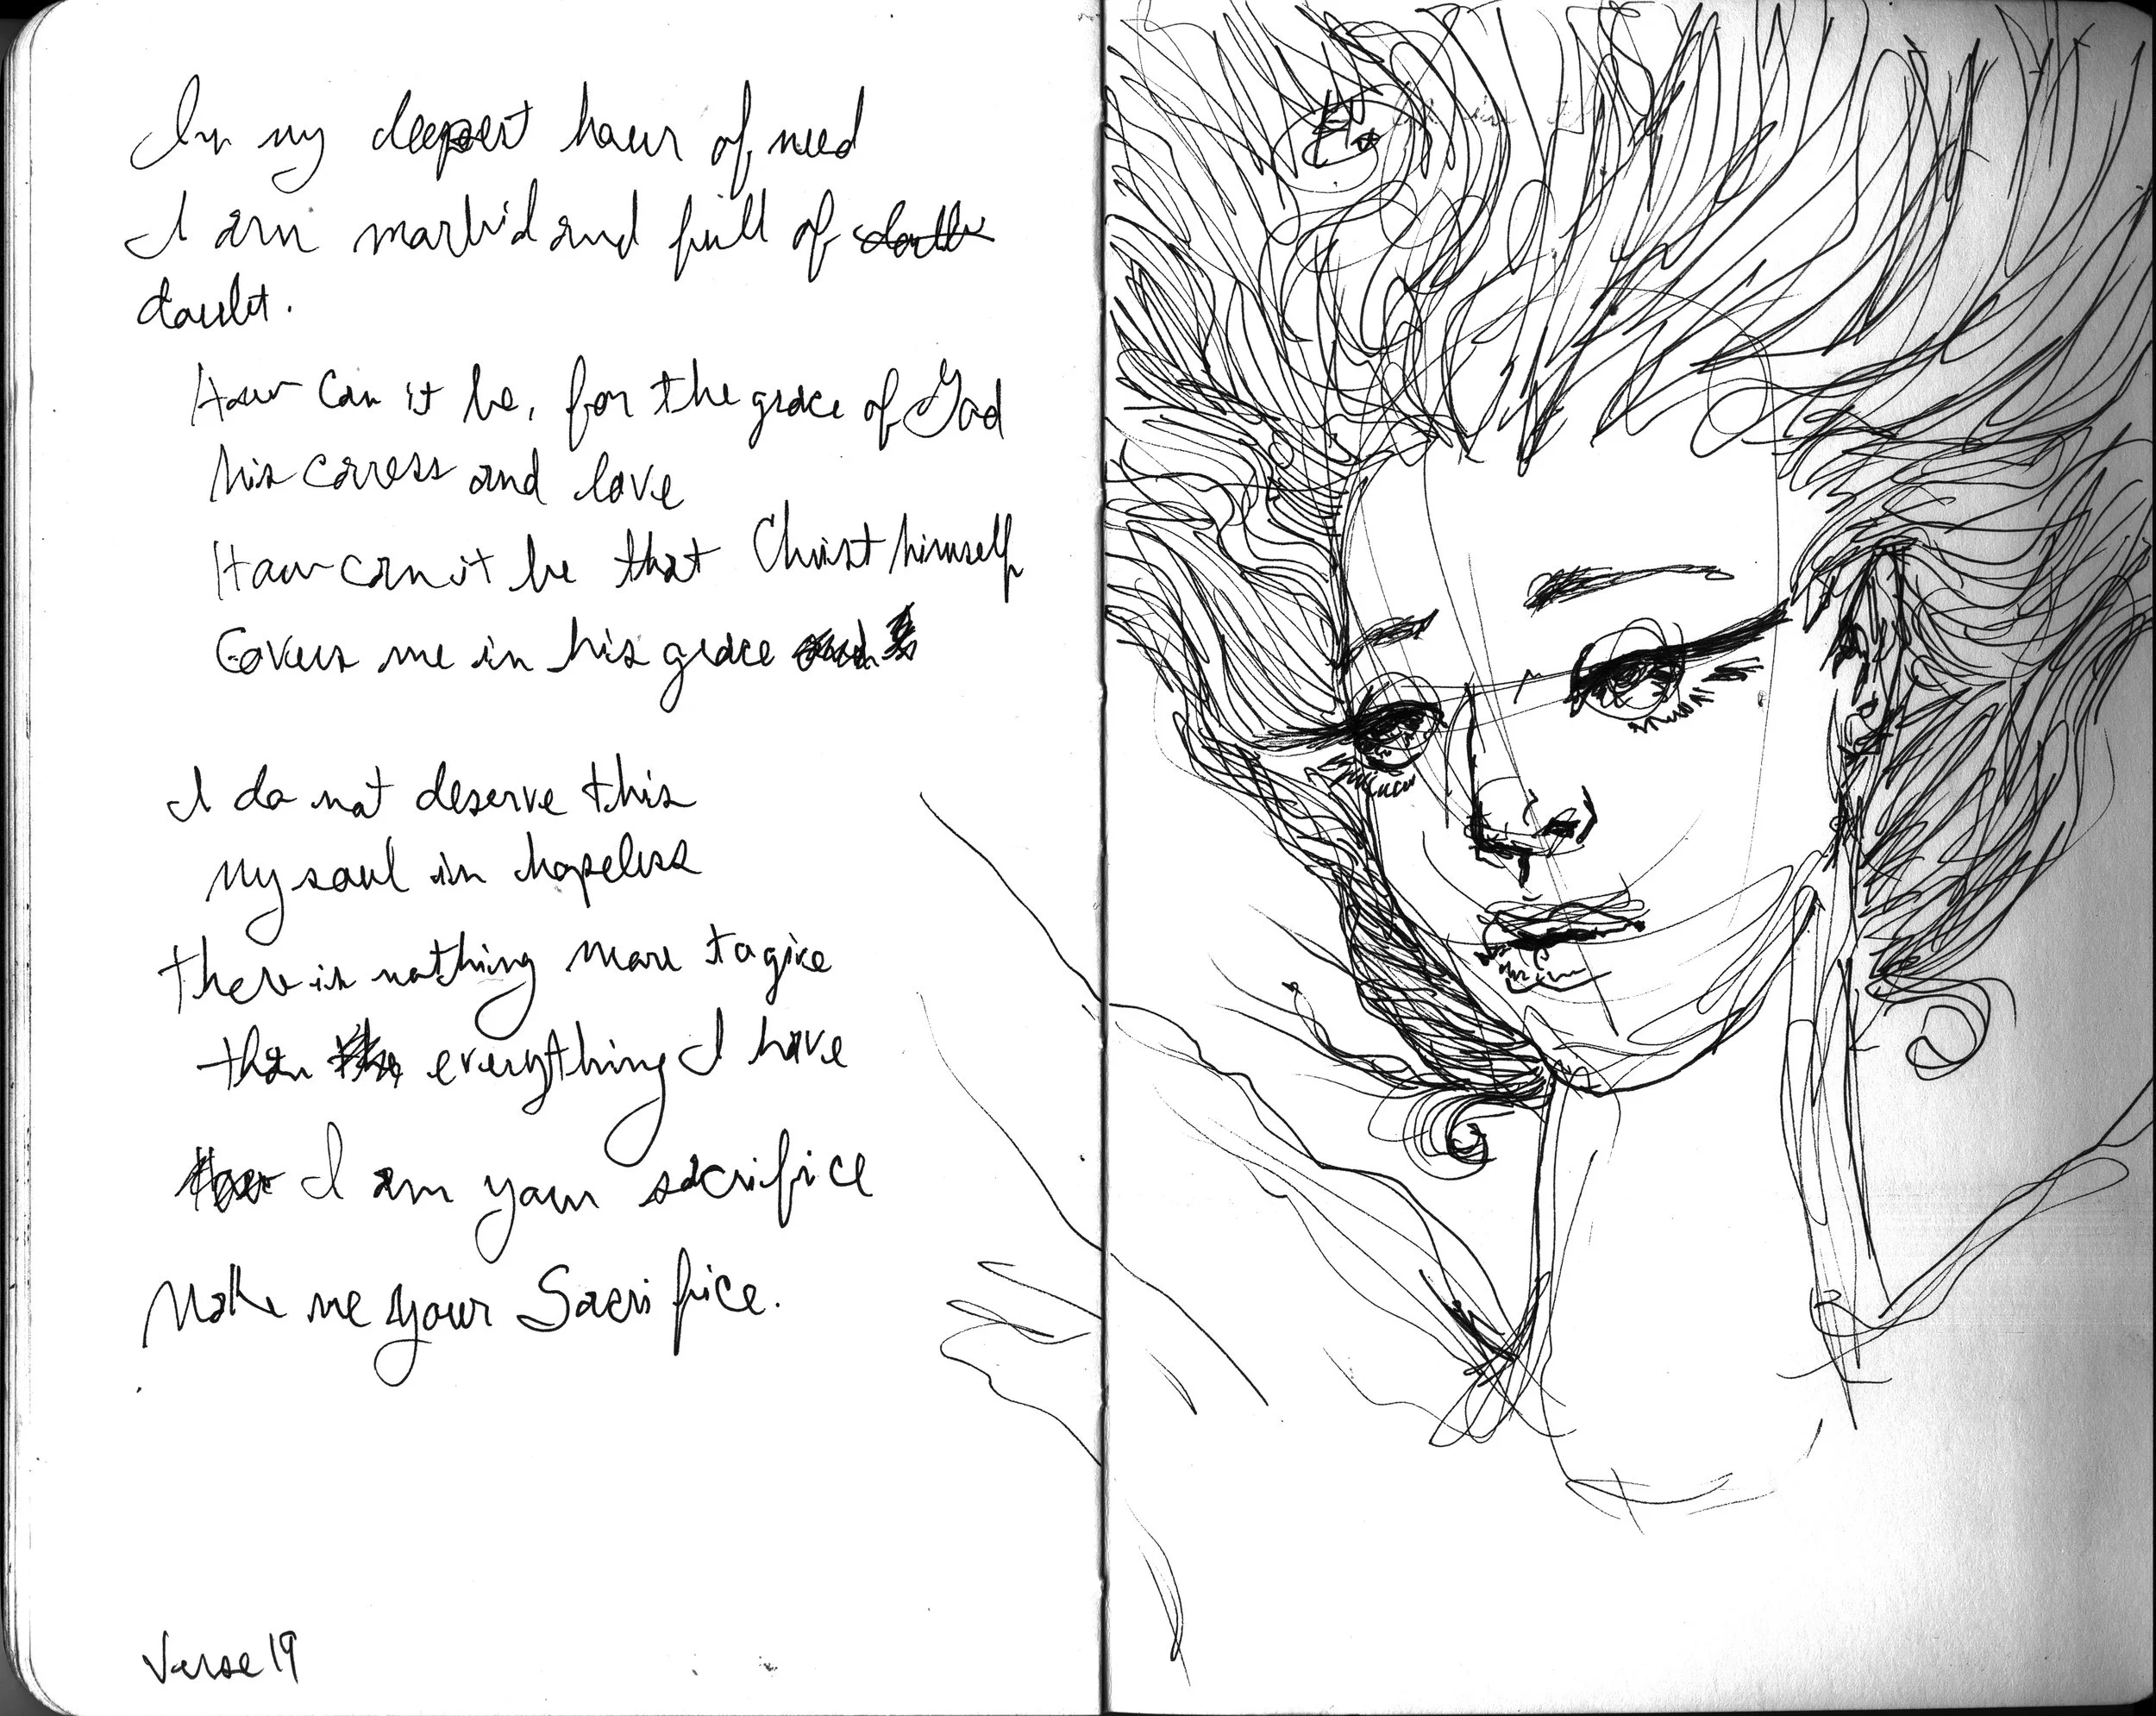 In my deepest hour of need
I am morbid and full of
doubt.
How can it be, for the grace of God
his caress and love
How can it be that Christ himself
Covers me in his grace
I do not deserve this
My soul is hopeless
there is nothing more to give
than everything I have
I am your sacrifice
Make me your Sacrifice.
Verse 19